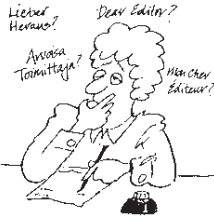 Lieber
Heraus?
Dear Editor?
Arvoisa
Toimittaja?
Mon Cher
Éditeur?